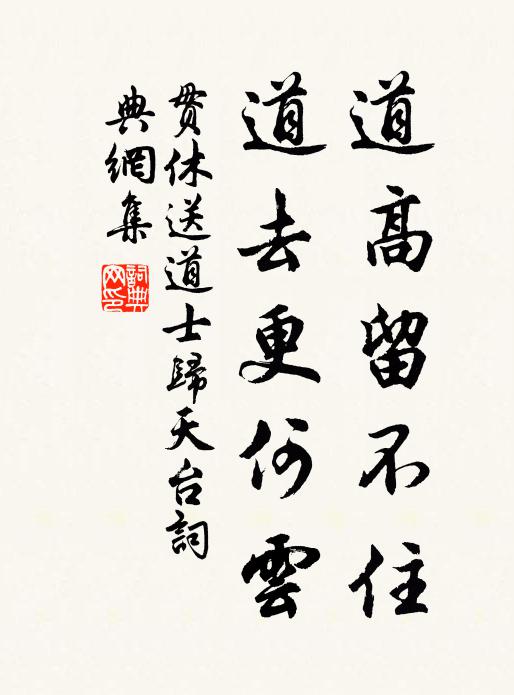 道高留不住
道去更何雲
貫休送道士歸天台詞
典網集
詞典
網印